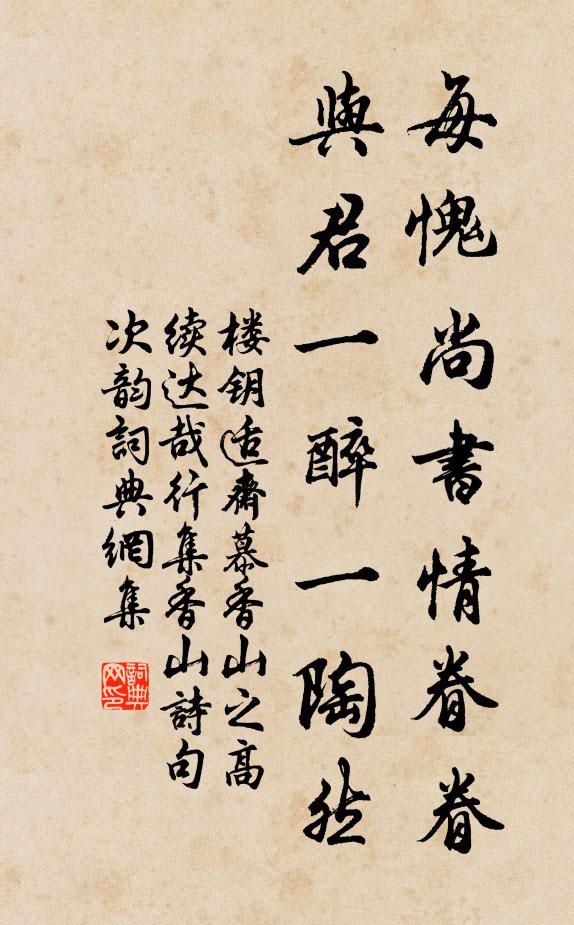 每愧尚書情眷眷
與君一醉一陶然
楼钥适齋慕香山之高
续达哉行集香山詩句
次韵詞典網集
詞典网印